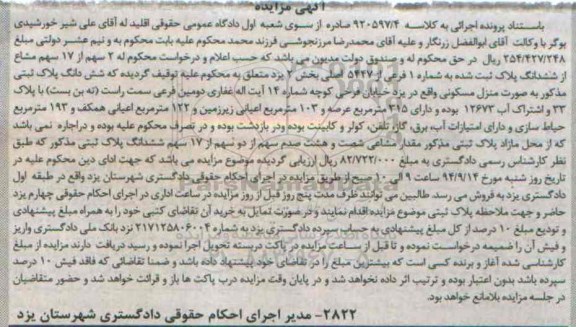 آگهی مزایده
باستناد پرونده اجرائی به کلاسه ۹۲۰۵۹۷/۴ صادره از سوی شعبه اول دادگاه عمومی حقوقی اقلید له آقای علی شیر خورشیدی
بوگر با وکالت آقای ابوالفضل زرنگار و علیه آقای محمدرضا مرزنجوشی فرزند محمد محکوم علیه بابت محکوم به و نیم عشر دولتی مبلغ
۲۵۴/۴۲۷/۲۴۸ ریال در حق محکوم له و صندوق دولت مدیون می باشد که حسب اعلام و درخواست محکوم له ۲ سهم از ۱۷ سهم مشاع
از ششدانگ پلاک ثبت شده به شماره ۱ فرعی از ۵۴۲۷ اصلی بخش ۲ یزد متعلق به محکوم علیه توقیف گردیده که شش دانگ پلاک ثبتی
مذکور به صورت منزل مسکونی واقع در یزد خیابان فهرج کوچه شماره ۱۴ آیت اله غفاری دومین فرعی سمت راست (ته بن بست) با پلاک
۳۳ و اشتراک آب ۱۲۶۷۳ بوده و دارای ۳۱۵ مترمربع عرصه و ۱۰۳ مترمربع اعیانی زیرزمین و ۱۲۲ مترمربع اعیانی همکف و ۱۹۳ مترمربع
حیاط سازی و دارای امتیازات آب، برق، گاز، تلفن، کولر و کابینت بوده ودر بازدشت بوده و در تصرف محکوم علیه بوده و دراجاره نمی باشد
که از محل مازاد پلاک ثبتی مذکور مقدار مشاعی شصت و هشت صدم سهم از دو سهم از ۱۷ سهم ششدانگ پلاک ثبتی مذکور که طبق
نظر کارشناس رسمی دادگستری به مبلغ ۸۲/۷۲۲/۰۰۰ ریال ارزیابی گردیده موضوع مزایده می باشد که جهت ادای دین محکوم علیه در
تاریخ روز شنبه مورخ ۹۴/۹/۱۴ ساعت ۹ الی ۱۰ صبح از طریق مزایده در اجرای احکام حقوقی دادگستری شهرستان یزد واقع در طبقه اول
دادگستری یزد به فروش می رسد. طالبین می توانند ظرف مدت پنج روز قبل از روز مزایده در ساعت اداری در اجرای احکام حقوقی چهارم یزد
حاضر و جهت ملاحظه پلاک ثبتی موضوع مزایده اقدام نمایند و در صورت تمایل به خرید آن تقاضای کتبی خود را به همراه مبلغ پیشنهادی
و تودیع مبلغ ۱۰ درصد از کل مبلغ پیشنهادی به حساب سپرده دادگستری یزد به شماره ۲۱۷۱۲۵۸۰۶۰۰۴ نزد بانک ملی دادگستری واریز
و فیش آن را ضمیمه درخواست نموده و تا قبل از ساعت مزایده در پاکت دربسته تحویل اجرا نموده و رسید دریافت دارند مزایده از مبلغ
کارشناسی شده آغاز و برنده کسی است که بیشترین مبلغ را در تقاضای خود پیشنهاد داده باشد و ضمنا تقاضائی که فاقد فیش ۱۰ درصد
سپرده باشد بدون اعتبار بوده و ترتیب اثر داده نخواهد شد و در پایان وقت مزایده درب پاکت ها باز و قرائت خواهد شد و حضور متقاضیان
در جلسه مزایده بلامانع خواهد بود.
۲۸۲۲- مدیر اجرای احکام حقوقی دادگستری شهرستان یزد